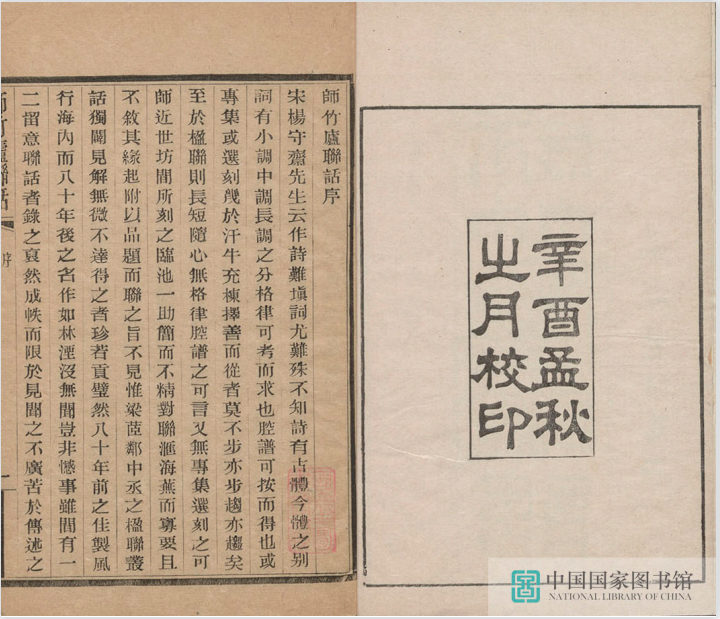 辛酉孟秋
之月校印
師竹廬聯話序
宋楊守齋先生云作詩難塡詞尤難殊不知詩有古體今體之别
詞有小調中調長調之分格律可考而求也腔譜可按而得也或
專集或選刻幾於汗牛充棟擇善而從者莫不步亦步趨亦趨矣
至於楹聯則長短隨心無格律腔譜之可言又無專集選刻之可
師近世坊間所刻之臨池一助簡而不精對聯滙海蕪而寡要且
不敘其緣起附以品題而聯之旨不見惟梁茝鄰中丞之楹聯叢
話獨闢見解無微不達得之者珍若貢璧然八十年前之佳製風
行海內而八十年後之名作如林湮沒無聞豈非憾事雖間有一
二留意聯話者錄之裒然成帙而限於見聞之不廣苦於傳述之
師竹廬聯話
序
一
中国国家图书馆
NATIONAL LIBRARY OF CHINA